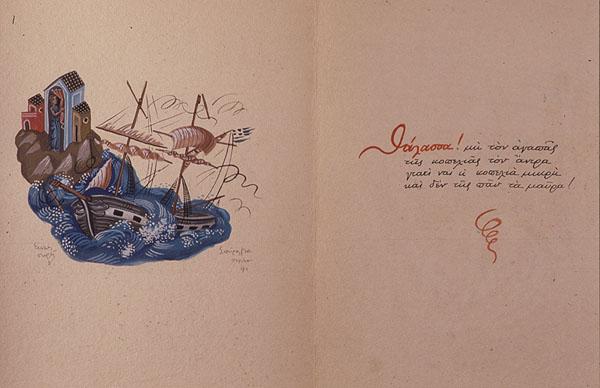 1
Θάλασσα! μὴ τὸν ἀγαπᾶς
τῆς κοπελιᾶς τὸν ἄντρα
γιατί ναι ἡ κοπελιὰ μικρὴ
καὶ δὲν τῆς πᾶν τὰ μαῦρα!